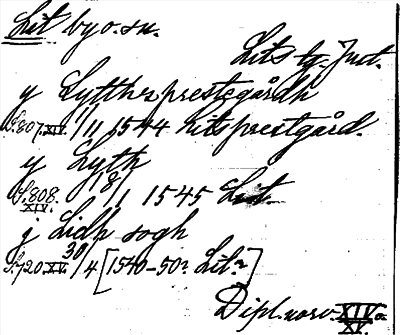 Lit by o. sn.
Lits tg. Jmt.
y Lytthes prestegårdh
S.807.XIV. 11/11 1544 Lits prestgård.
y Lyth
S.808.XIV. 8/1 1545 Lit.
j Lidh sogh
S.720.XV. 30/4 [1540-50? Lit?]
Dipl. norv. XIV o. XV.